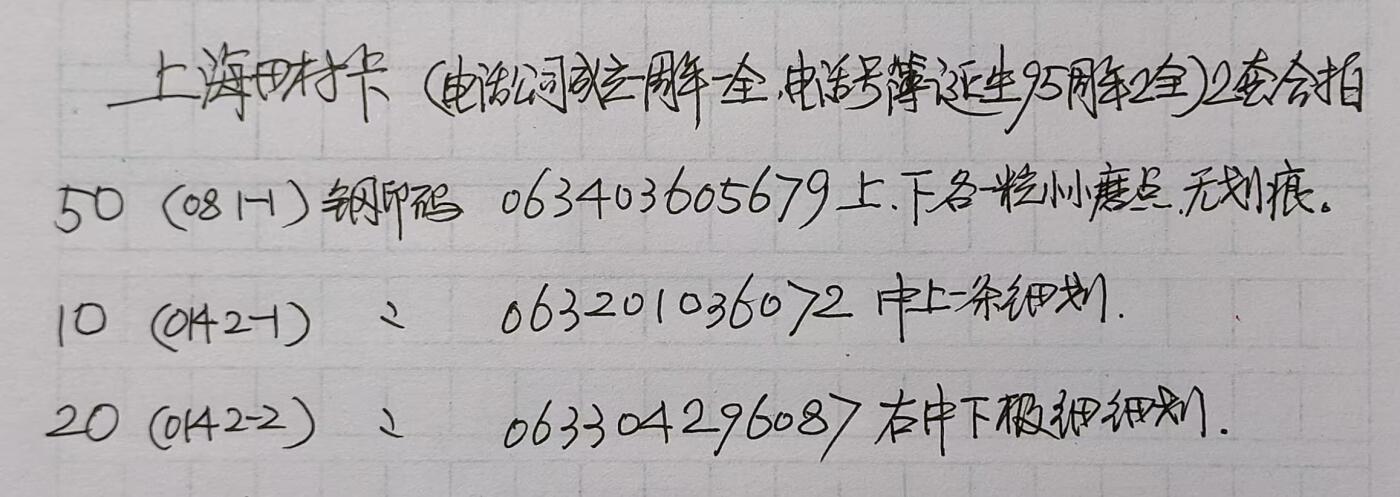 上海田村卡(电话公司成立一周年一全、电话号薄诞生95周年2全)2套合拍
50 (081-1) 钢印码 063403605679上、下各一粒小小磨点、无划痕。
10 (0142-1) 〃 063201036072 中上一条细划.
20 (0142-2) 〃 063304296087 右中下极细细划.